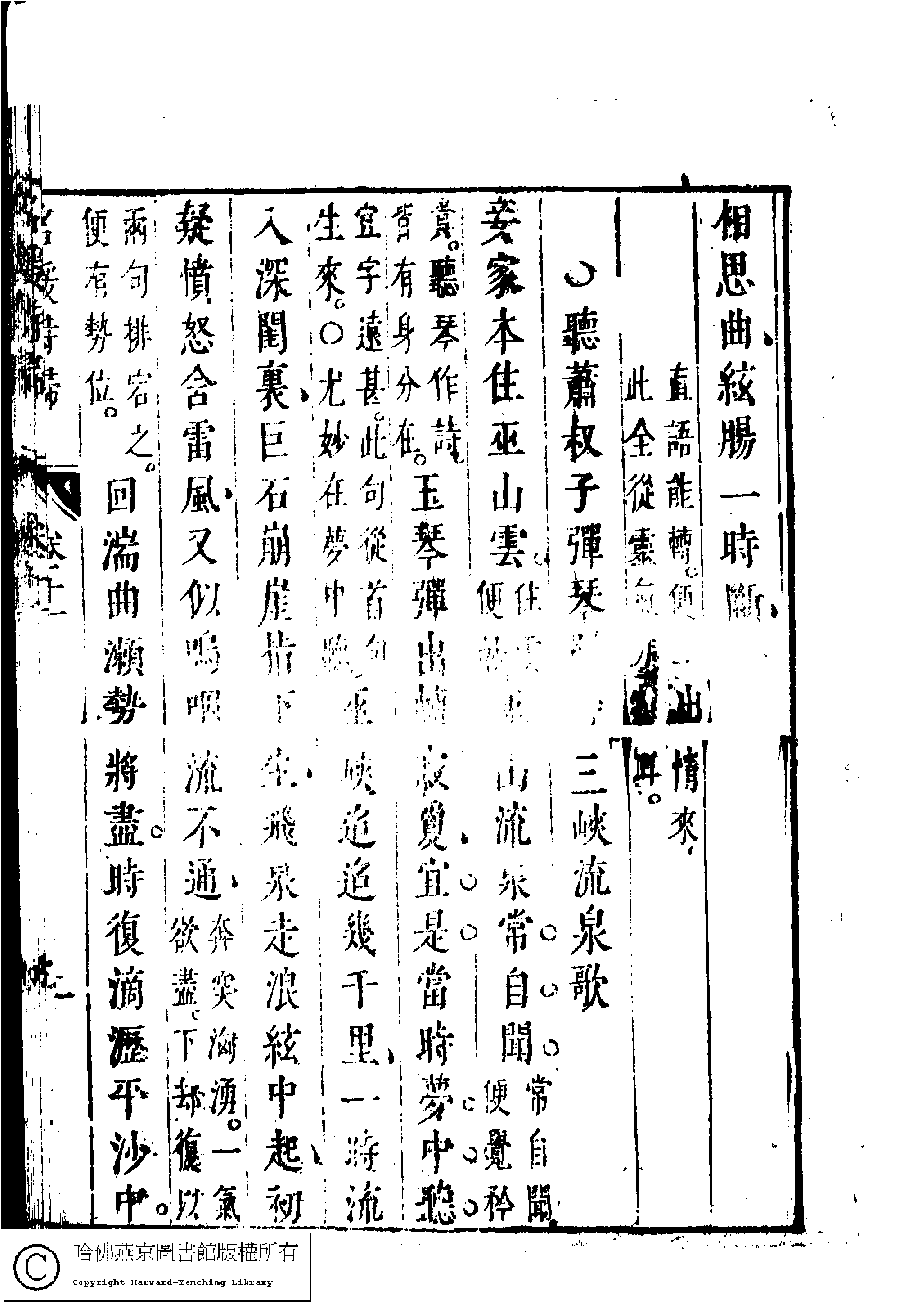 相思曲絃腸一時斷
直語能轉。便出情來
此全從靈氣耳。
〇聽蕭叔子彈琴 三峽流泉歌
妾家本住巫山雲。
山流泉常自聞
常自聞
便覺矜
貴。聽琴作詩
皆有身分在。
玉琴彈出轉寂敻宜是當時夢中聽
宜字遠甚。此句從首句
生來。〇尤妙在夢中聽
峽迢迢幾千里一時流
入深閨裏巨石崩崖指下生飛泉走浪絃中起初
疑憤怒含雷風又似嗚咽流不通
奔突洶湧。一氣
欲盡。下却復以
兩句排宕之。
便有勢位。
回湍曲瀨勢將盡。時復滴瀝平沙中。
名媛詩歸 卷十一
哈佛燕京圖書館版權所有
Copyright Harvard-Yenching Library